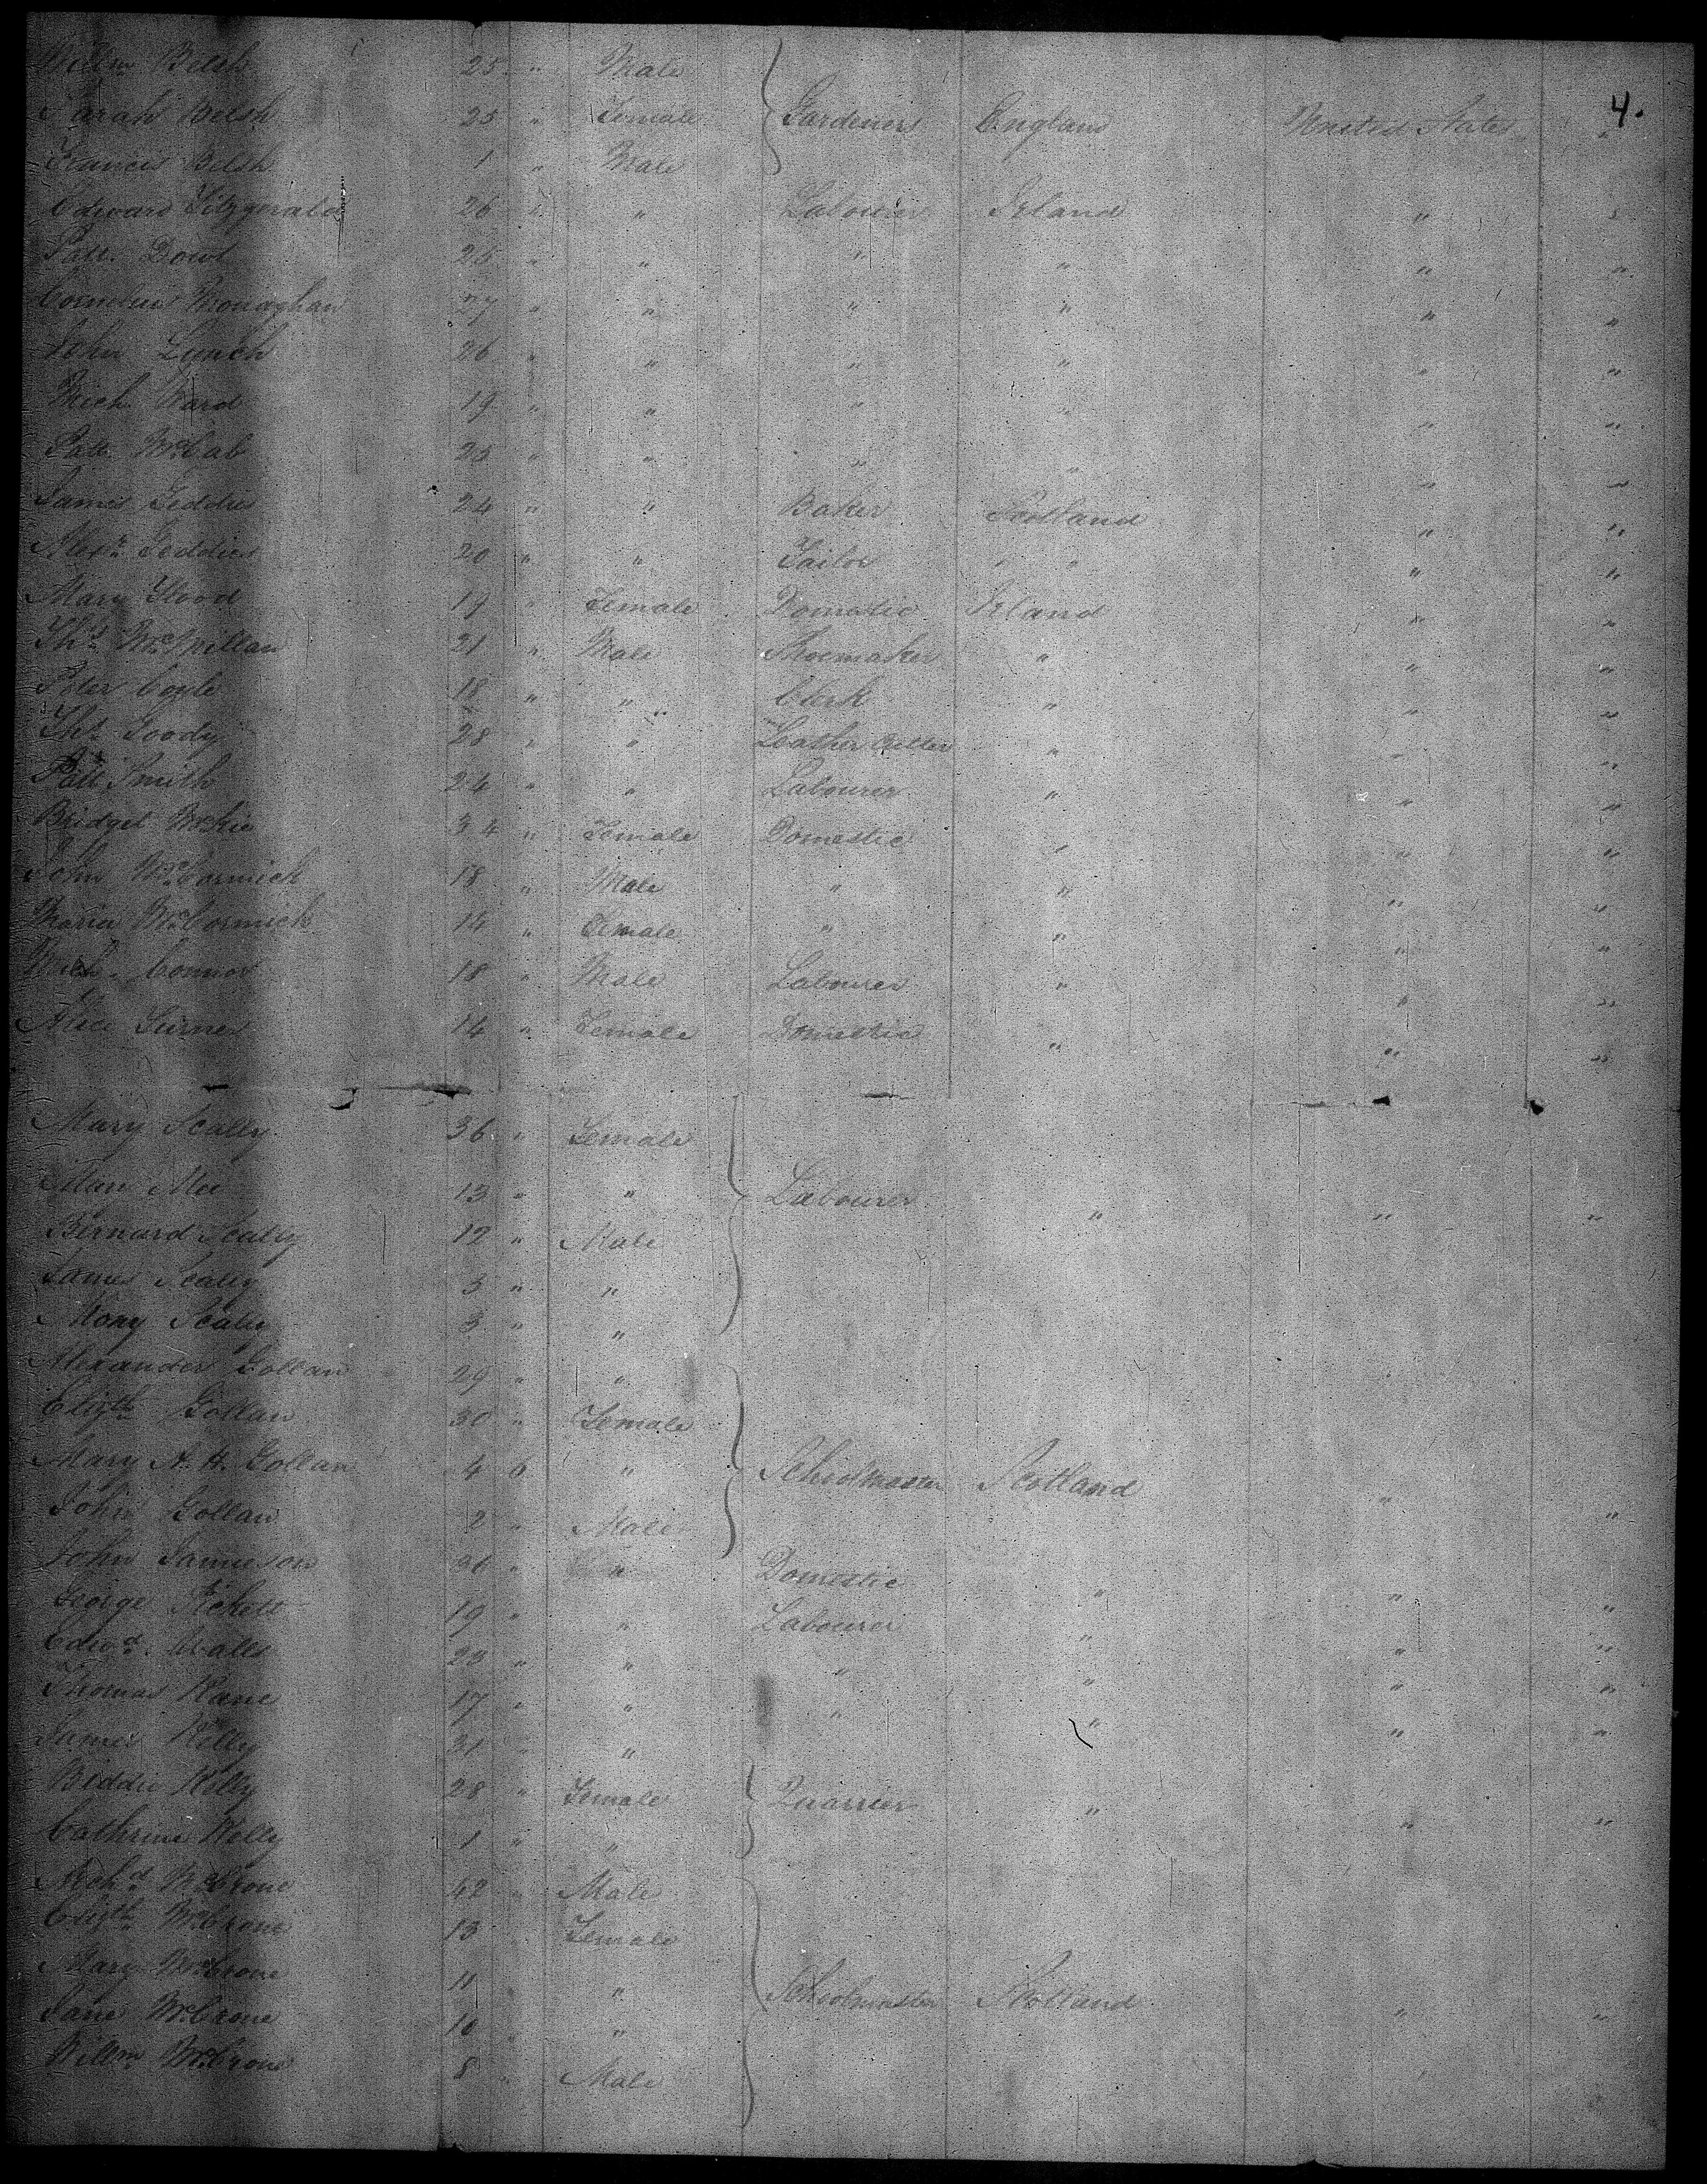 4.
Willm Belsh 25 " Male
Sarah Belsh 25 " Female Gardener England United States "
Francis Belsh 1 " Male
Edward Fitzgerald 26 " " Labourer Irland " "
Patt. Dowd 26 " " " " " "
Cornelius Monaghan 27 " " " " " "
John Lynch 26 " " " " " "
Mich. Ward 19 " " " " " "
Patt. McCab 25 " " " " " "
James Geddies 24 " " Baker Scotland " "
Alexr. Geddies 20 " " Tailor " " "
Mary Flood 19 " Female Domestic Irland " "
Ths. McMillan 21 " Male Shoemaker " " "
Peter Coyle 18 " " Clerk " " "
Ths. Goody 28 " " Leather Cutter " " "
Patt Smith 24 " " Labourer " " "
Bridget McKie 34 " Female Domestic " " "
John McCormick 18 " Male " " " "
Maria McCormick 14 " Female " " " "
Mich. Connor 18 " Male Labourer " " "
Alice Turner 14 " Female Domestic " " "
Mary Scally 36 " Female
Mary Mee 13 " " Labourer " " "
Bernard Scally 12 " Male
James Scally 5 " "
Mary Scally 3 " "
Alexander Gollan 29 " "
Elizth Gollan 30 " Female
Mary A. H. Gollan 4 6 " Schoolmaster Scotland " "
John Gollan 2 " Male
John Jamieson 26 " " Domestic " " "
George Pickett 19 " " Labourer " " "
Edwd. Walls 23 " " " " " "
Thomas Kane 17 " " " " " "
James Kelly 31 " "
Biddie Kelly 28 " Female Quarrier " " "
Cathrine Kelly 1 " "
Archd McCrone 42 " Male
Elizth McCrone 13 " Female
Mary McCrone 11 " " Schoolmaster Scotland " "
Jane McCrone 10 " "
Willm McCrone 8 " Male